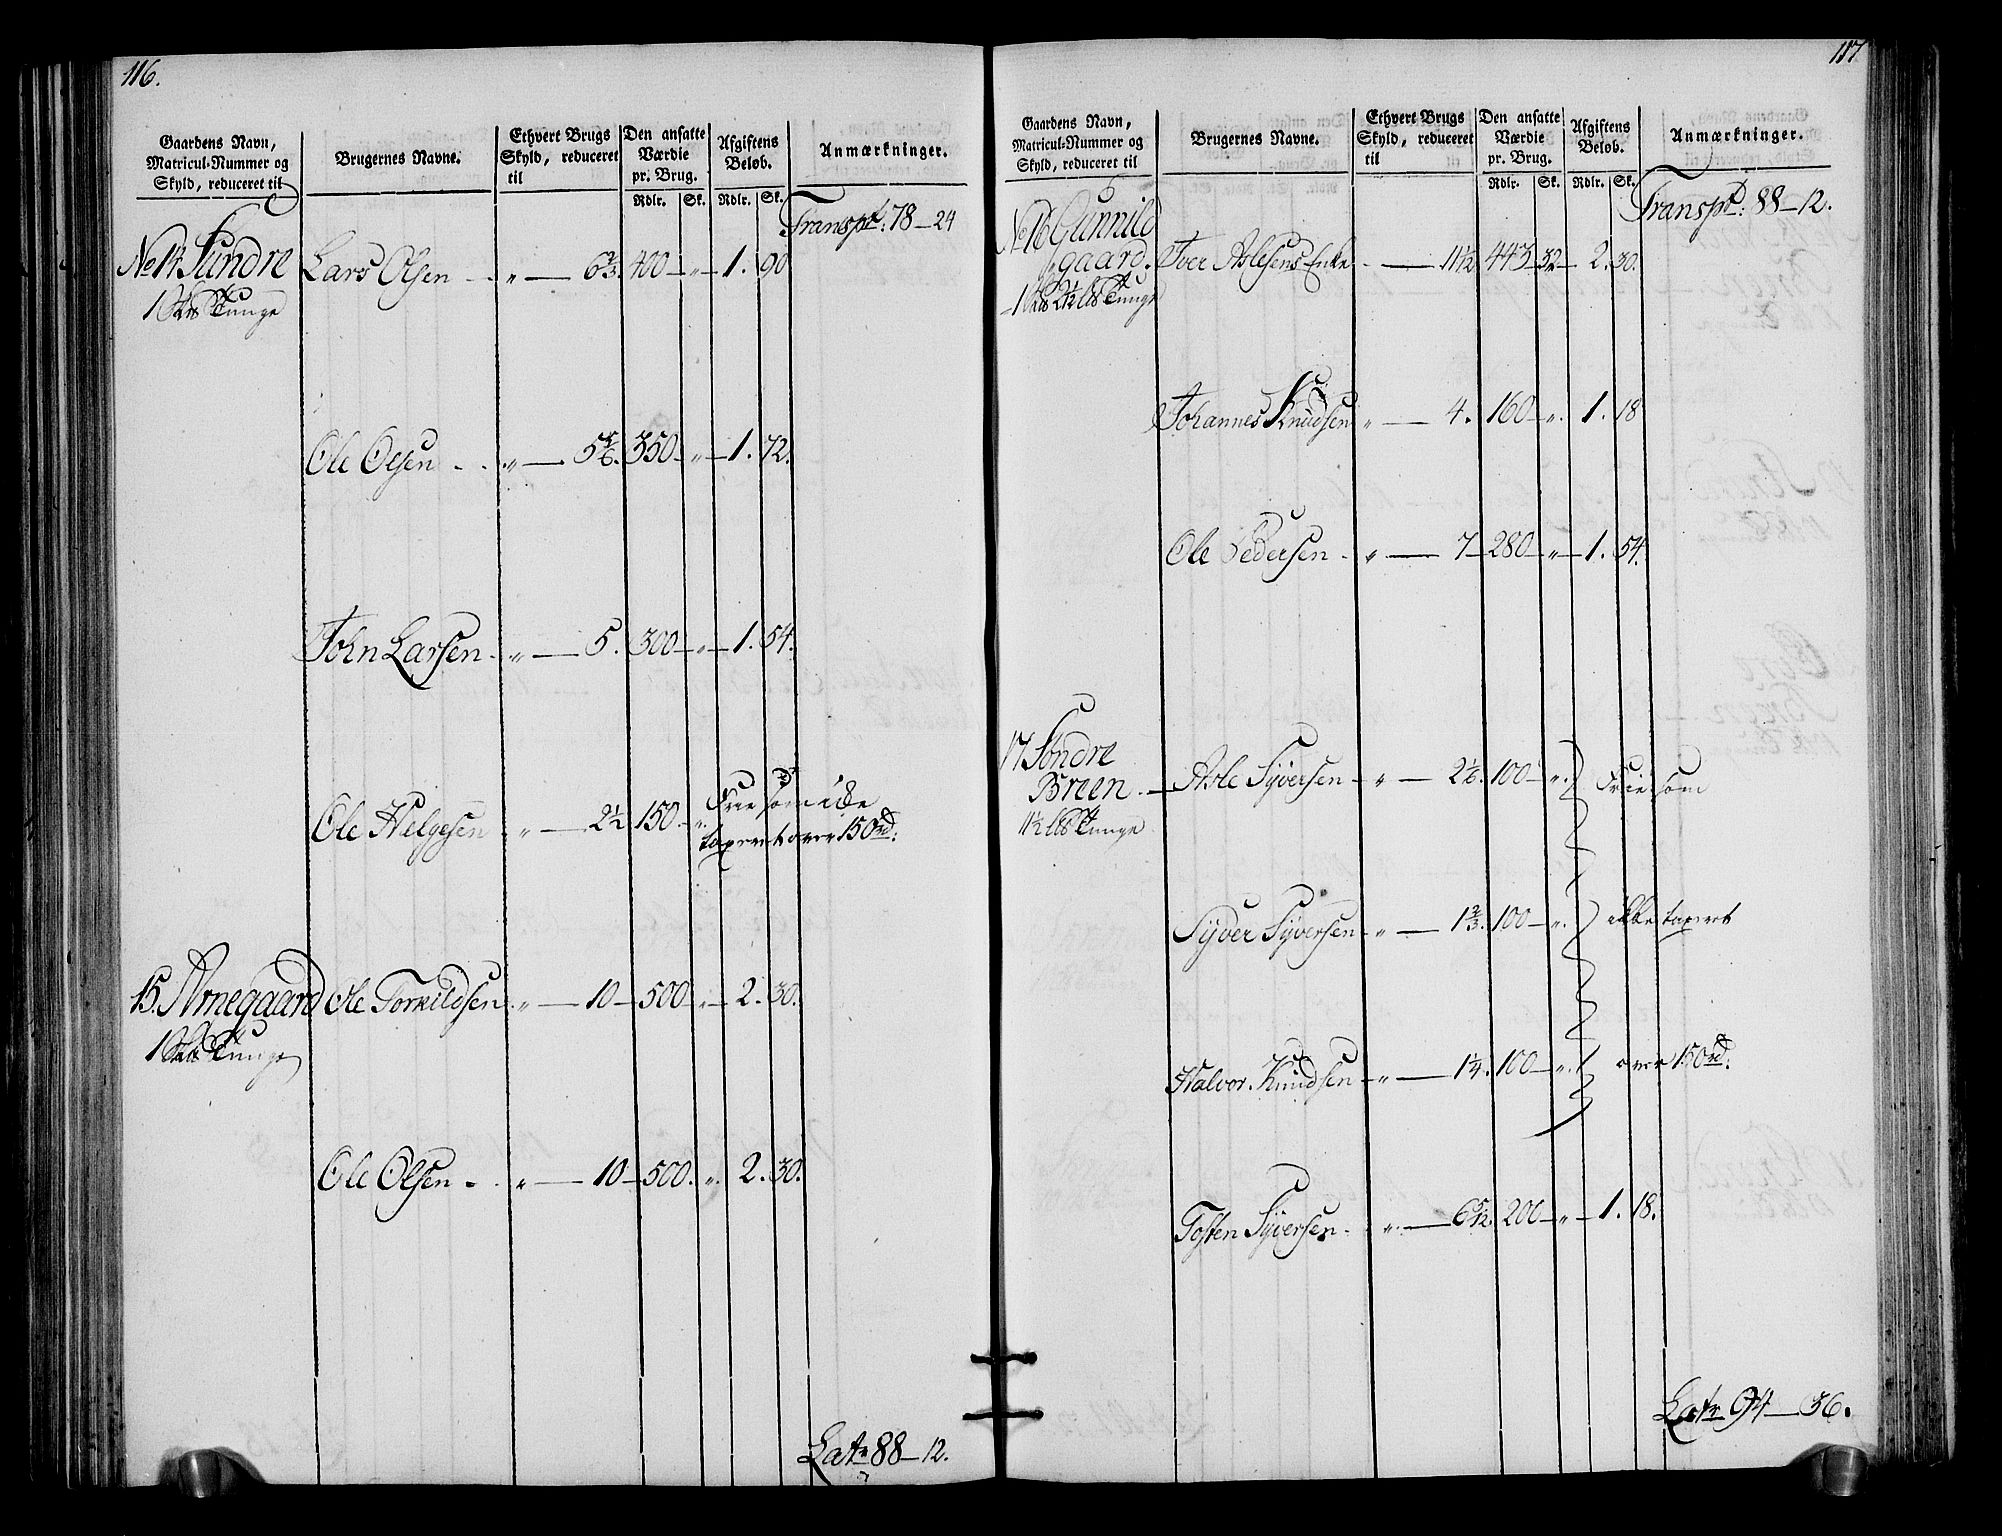 116.
Gaardens Navn, Matricul-Nummer og Skyld, reduceret til
Brugernes Navne.
Ethvert Brugs Skyld, reduceret til
Den ansatte Værdie pr. Brug.
Afgiftens Beløb.
Anmærkninger.
Rdlr. Sk. Rdlr. Sk.
Transpt: 78 – 24
No 14 Sundre Lars Olsen - " — 6 2/3. 400 – " – 1. 90
1 Tunge
Ole Olsen - . " — 5 5/6. 350 – " – 1. 72.
John Larsen - " — 5. 300 – " – 1. 54.
Ole Helgesen " — 2 1/2 150. – " Frie som icke
taxeert over 150 rd:
15. Arnegaard Ole Torkildsen " — 10 – 500 " – 2. 30.
1 Tunge
Ole Olsen - . " — 10 – 500. " 2. 30.
Latr 88 – 12.
117
Gaardens Navn, Matricul-Nummer og Skyld, reduceret til
Brugernes Navne.
Ethvert Brugs Skyld, reduceret til
Den ansatte Værdie pr. Brug.
Afgiftens Beløb.
Anmærkninger.
Rdlr. Sk. Rdlr. Sk.
Transpt: 88 – 12.
No 16 Gunnild
gaard. Iver Aslesens Enke - — 11 1/2 443 32 – 2. 30.
1 2 1/2 Tunge
Johannes Knudsen " — 4. 160 – ". 1. 18
Ole Pedersen - " — 7 – 280 – " – 1. 54.
17 Søndre
Breen. – Asle Syversen – " — 2 1/6. 100 – ". Frie som
11 1/2 Tunge
Syver Syversen – " — 1 2/3. 100 – ". ikke taxeret
Halvor Knudsen – " — 1 1/4. 100 – ". over 150 rd:
Tosten Syversen - " — 6 5/12. 200 – " – 1. 18.
Latr 94 – 36.